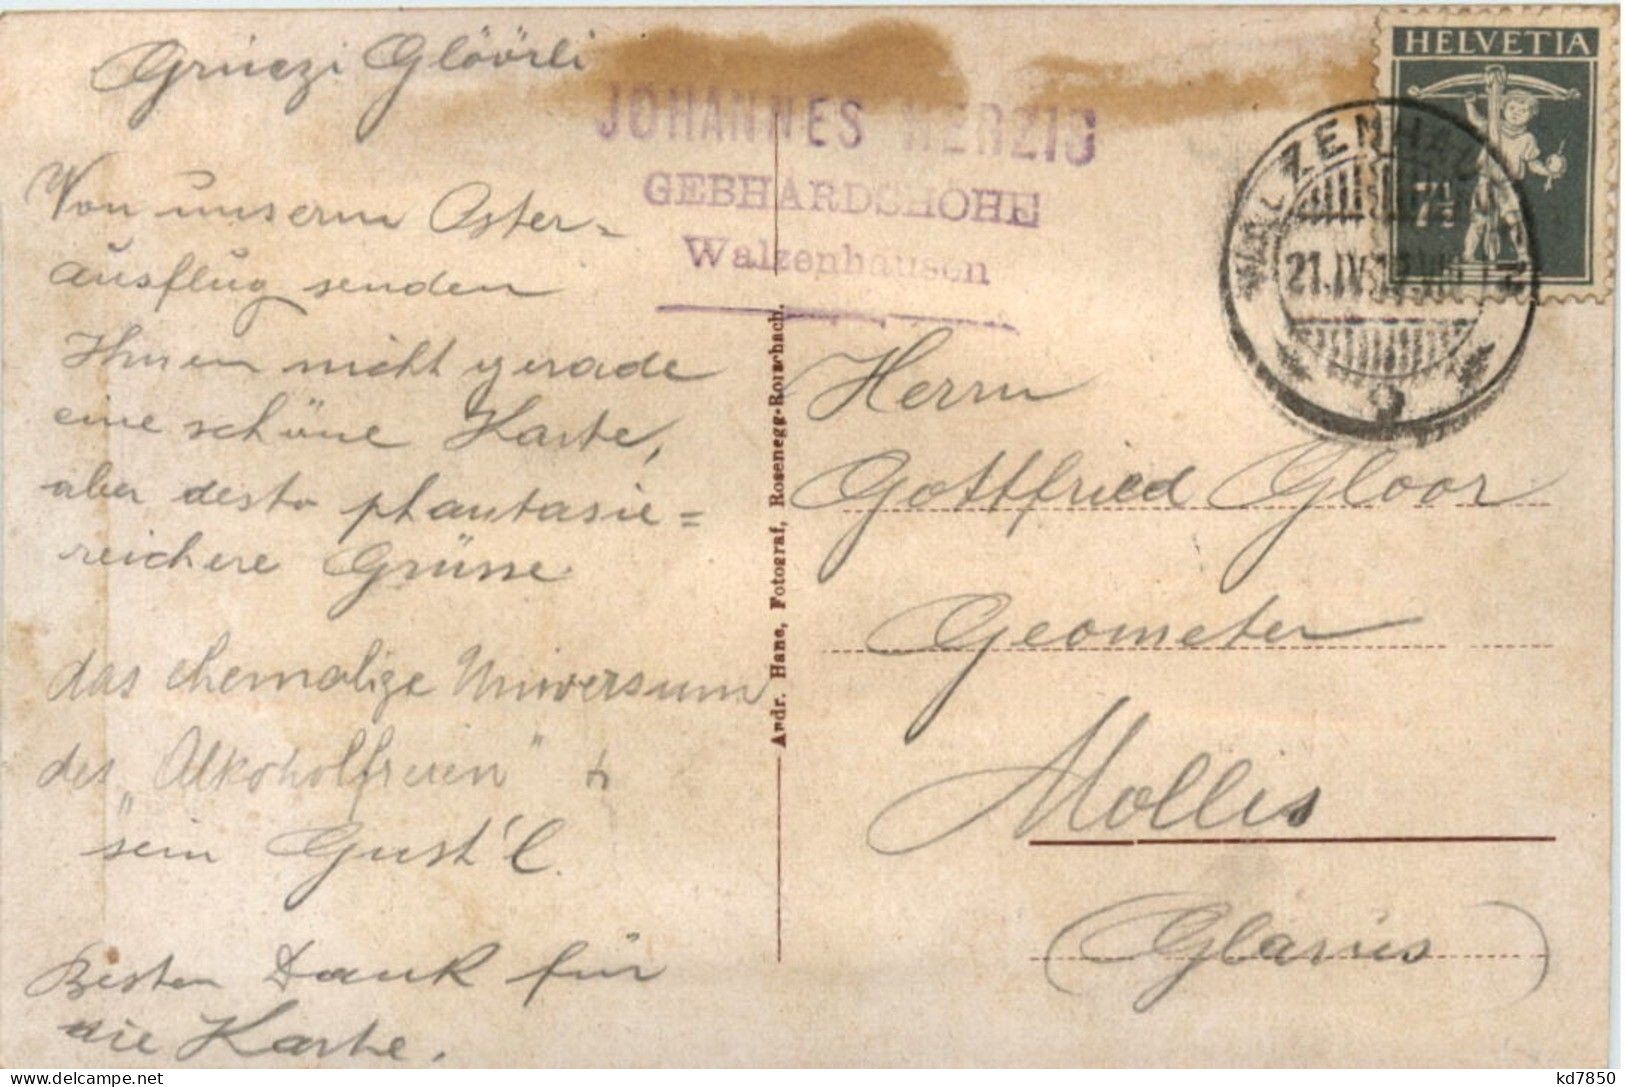 Grüezi Glöörli
Von unserm Oster-
ausflug senden
Ihnen nicht gerade
eine schöne Karte,
aber desto phantasie=
reichere Grüsse
das ehemalige Universum
des „Alkoholfreien"
sein Gust'l.
Besten Dank für
die Karte.
JOHANNES HERZIG
GEBHARDSHÖHE
Walzenhausen
HELVETIA
7½
WALZENHAUSEN
21.IV.
Andr. Hane, Fotograf, Rosenegg-Rorschach.
Herrn
Gottfried Gloor
Geometer
Mollis
(Glarus)
delcampe.net
kd7850